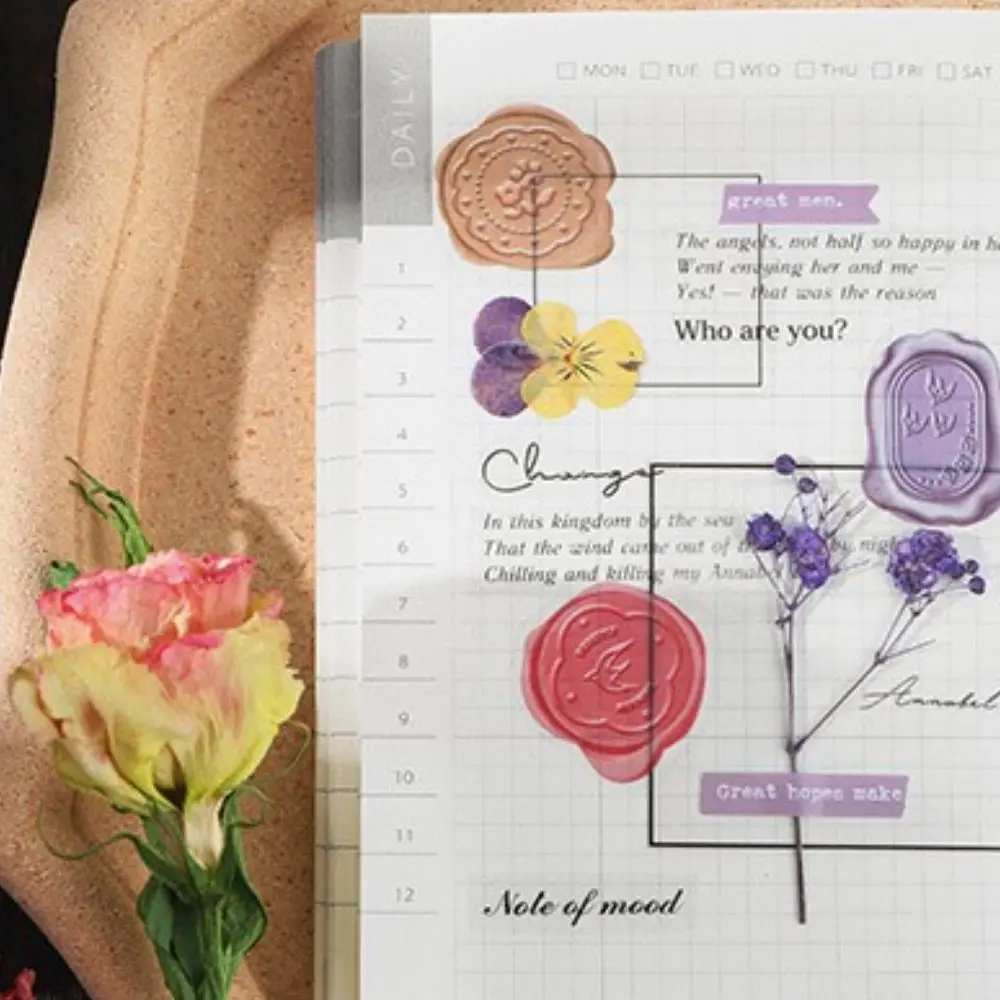 DAILY
MON TUE WED THU FRI SAT
great men.
The angels, not half so happy in
Went envying her and me —
Yes! — that was the reason
Who are you?
1
2
3
4
5
6
7
8
9
10
11
12
Change
In this kingdom by the sea
That the wind came out of by
Chilling and killing my
Annabel
Great hopes make
Note of mood